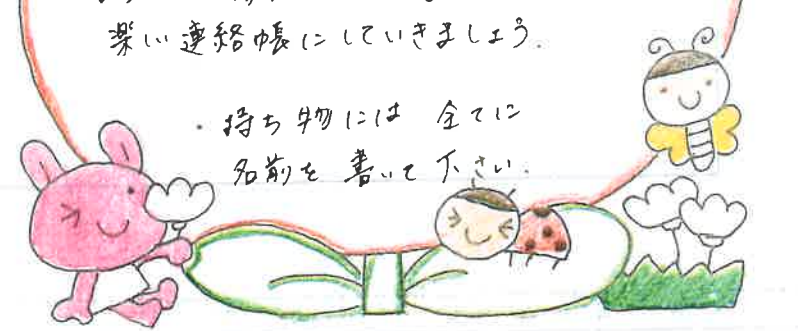 楽しい連絡帳にしていきましょう.
・持ち物には 全てに
名前を 書いて下さい.